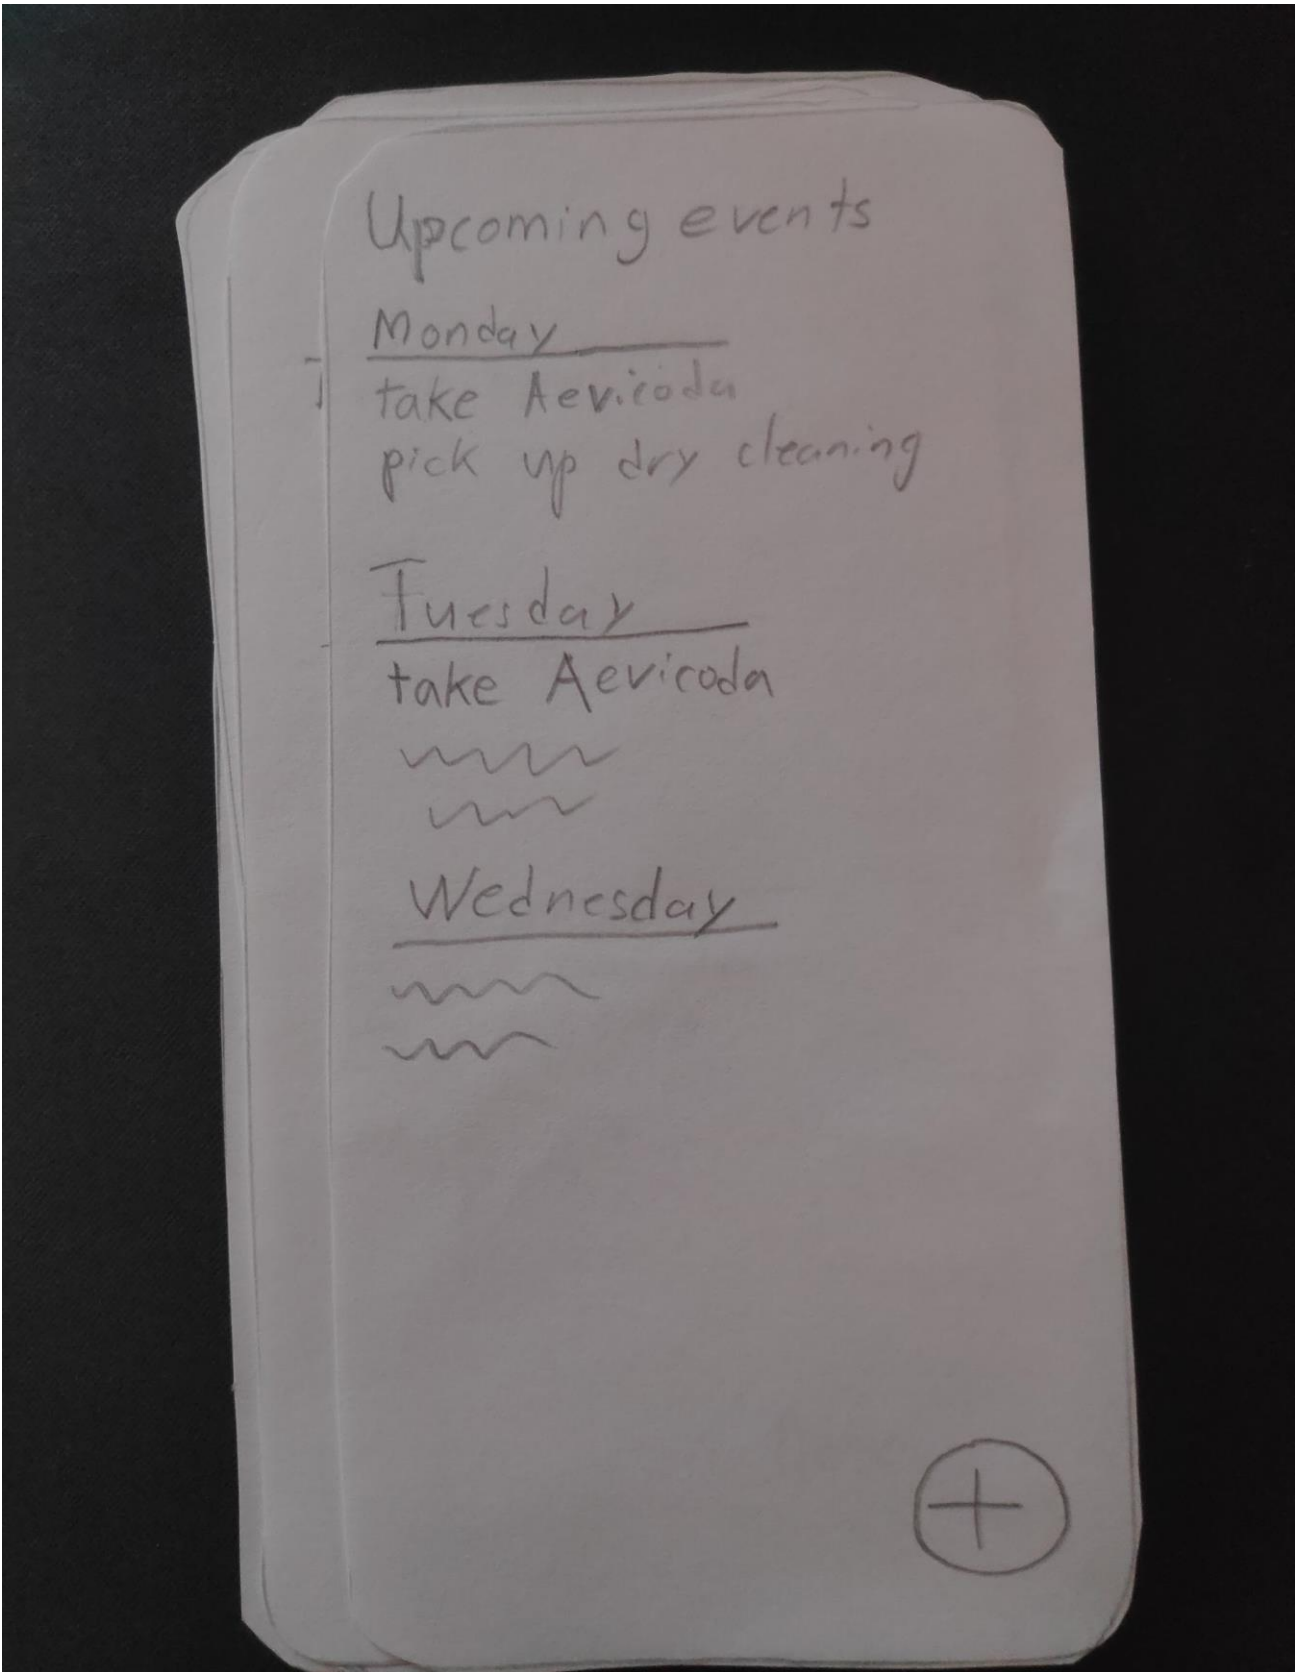 Upcoming events
Monday
take Aevicoda
pick up dry cleaning
Tuesday
take Aevicoda
Wednesday